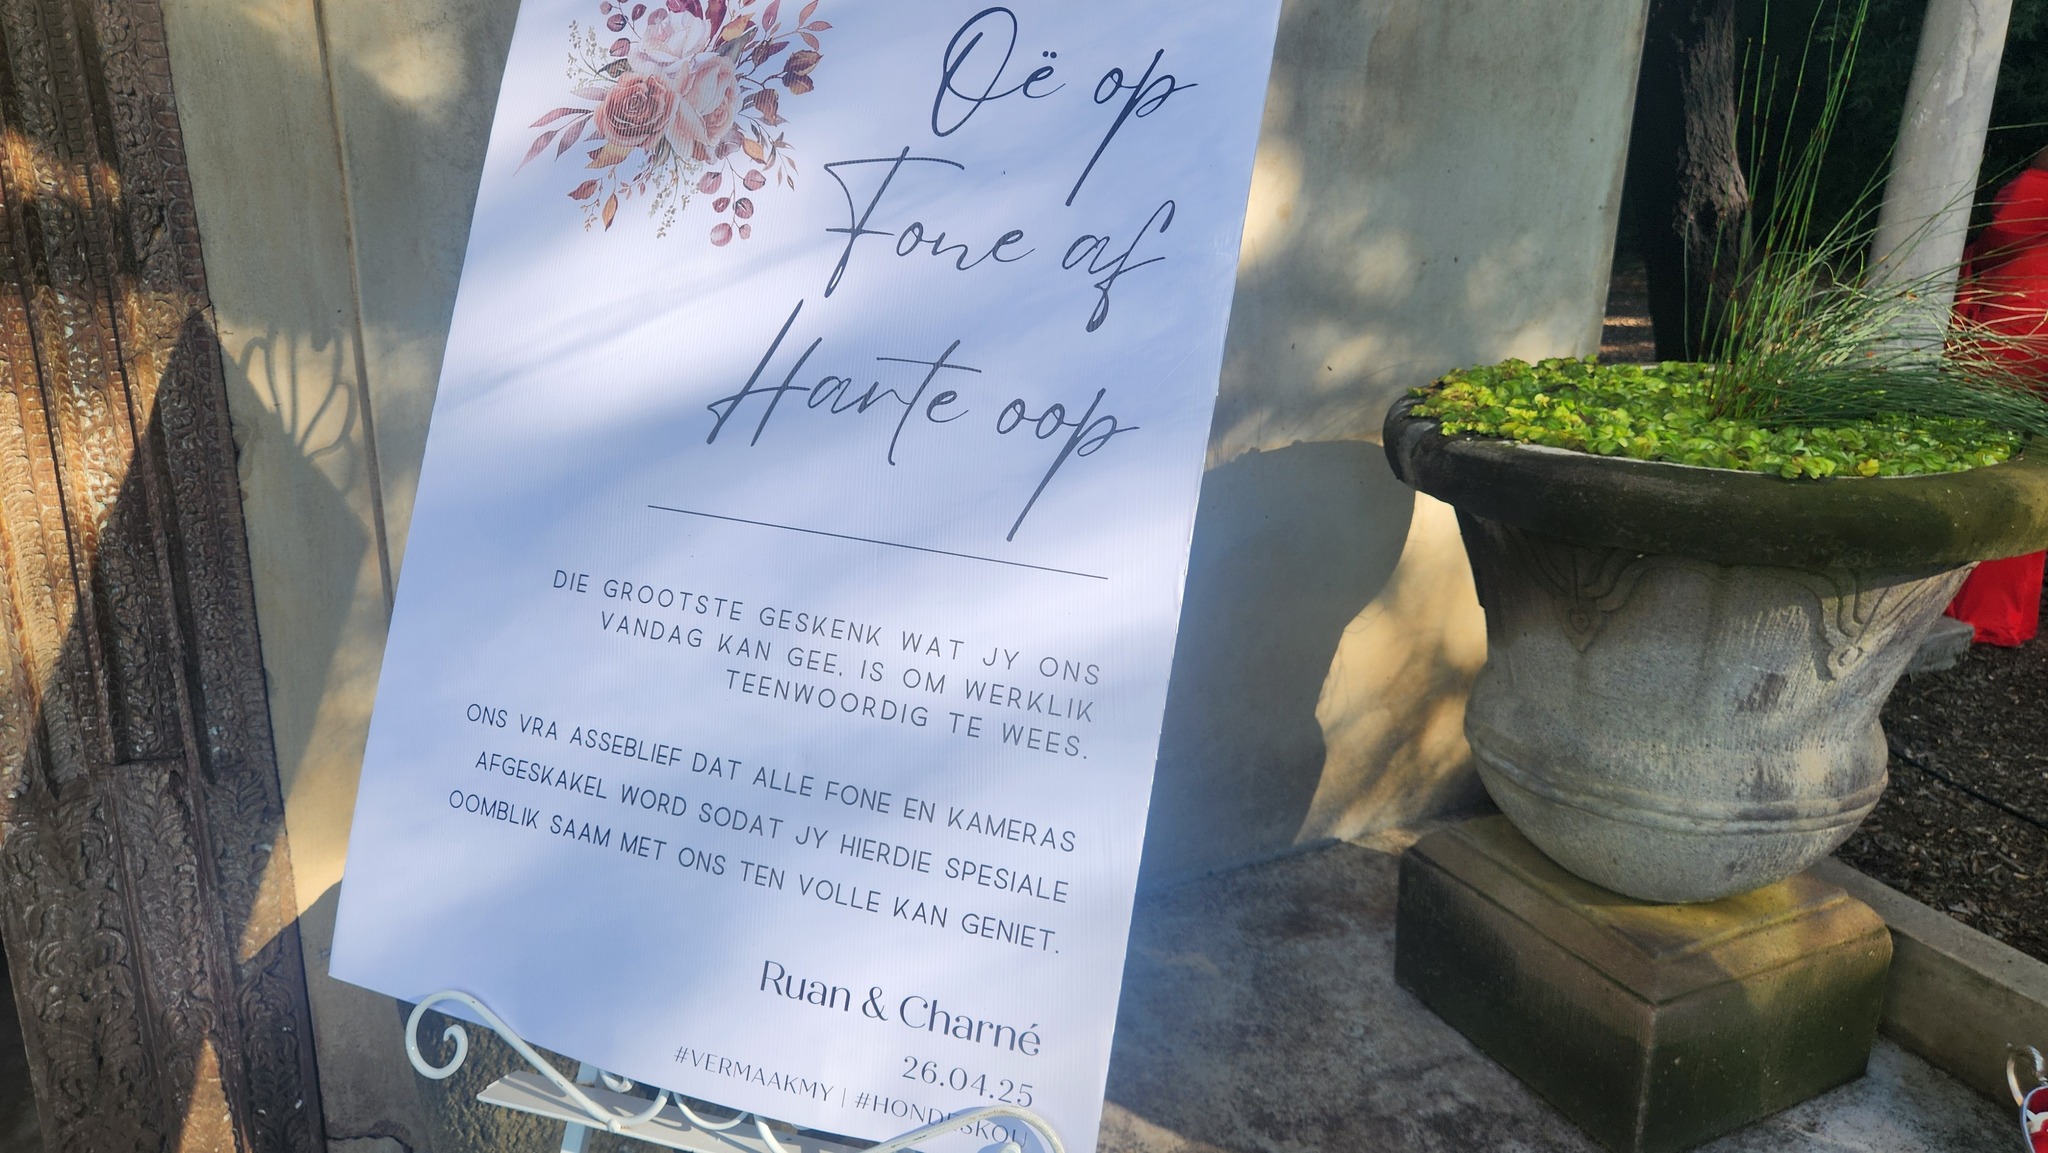 Oë op
Fone af
Harte oop
DIE GROOTSTE GESKENK WAT JY ONS
VANDAG KAN GEE, IS OM WERKLIK
TEENWOORDIG TE WEES.
ONS VRA ASSEBLIEF DAT ALLE FONE EN KAMERAS
AFGESKAKEL WORD SODAT JY HIERDIE SPESIALE
OOMBLIK SAAM MET ONS TEN VOLLE KAN GENIET.
Ruan & Charné
26.04.25
#VERMAAKMY |